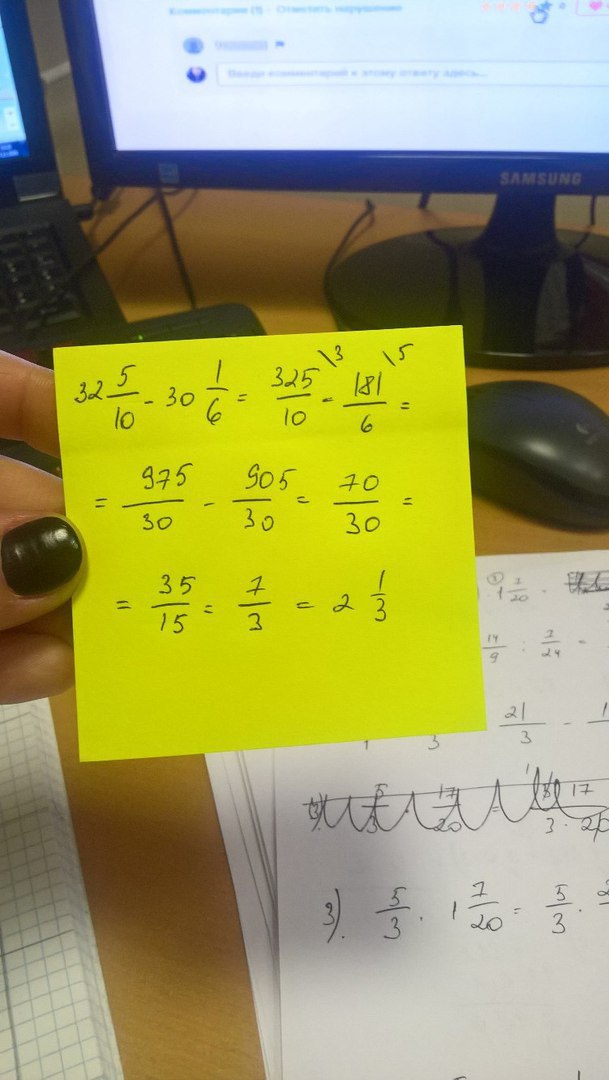 Комментарии (1) · Отметить нарушение
Введи комментарий к этому ответу здесь...
SAMSUNG
32 5/10 - 30 1/6 = 325/10 \3 - 181/6 \5 =
= 975/30 - 905/30 = 70/30 =
= 35/15 = 7/3 = 2 1/3
1 7/20
14/9 : 7/24 =
21/3 -
3). 5/3 · 1 7/20 = 5/3 ·